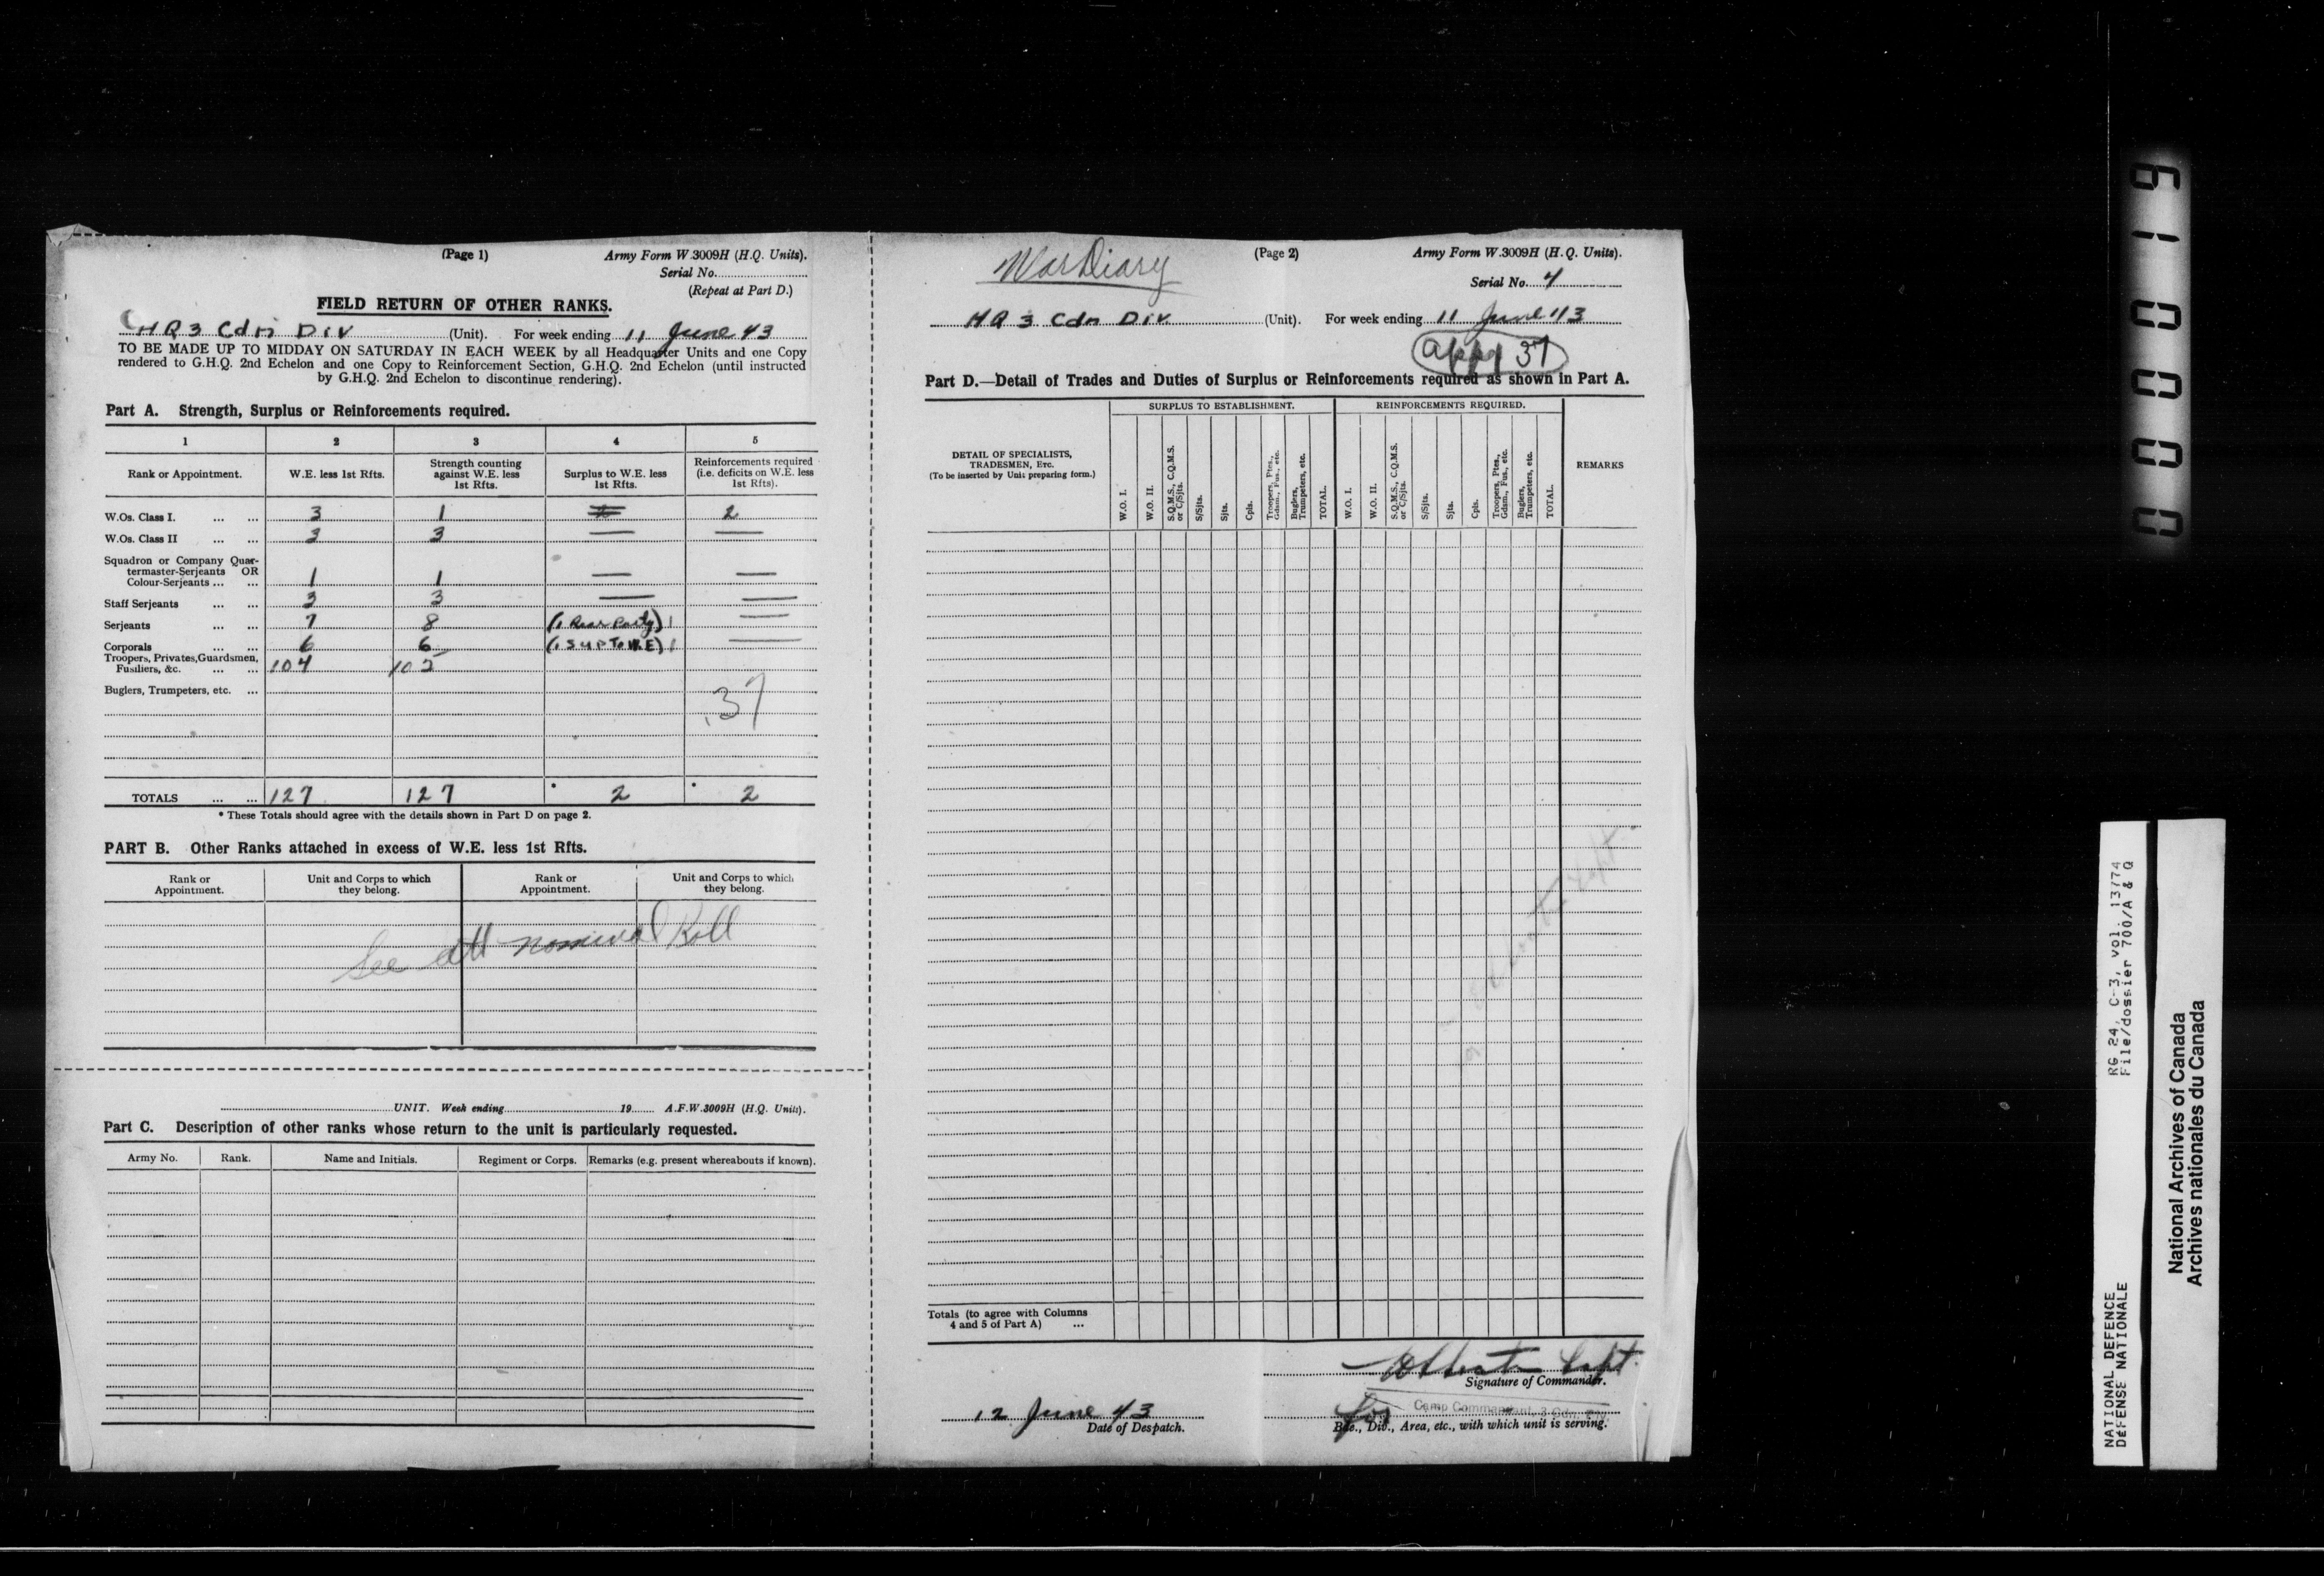 (Page 1)
Army Form W.3009H (H.Q. Units).
Serial No.
(Repeat at Part D.)
FIELD RETURN OF OTHER RANKS.
HQ 3 Cdn Div (Unit). For week ending 11 June 43
TO BE MADE UP TO MIDDAY ON SATURDAY IN EACH WEEK by all Headquarter Units and one Copy
rendered to G.H.Q. 2nd Echelon and one Copy to Reinforcement Section, G.H.Q. 2nd Echelon (until instructed
by G.H.Q. 2nd Echelon to discontinue rendering).
Part A. Strength, Surplus or Reinforcements required.
1 2 3 4 5
Rank or Appointment. W.E. less 1st Rfts. Strength counting against W.E. less 1st Rfts. Surplus to W.E. less 1st Rfts. Reinforcements required (i.e. deficits on W.E. less 1st Rfts).
W.Os. Class I. ... ... 3 1 2
W.Os. Class II ... ... 3 3 — —
Squadron or Company Quar-
termaster-Serjeants OR
Colour-Serjeants ... ... 1 1 — —
Staff Serjeants ... ... 3 3 — —
Serjeants ... ... 7 8 (1 Rear Party) 1 —
Corporals ... ... 6 6 (1 SUP To W.E) 1 —
Troopers, Privates, Guardsmen,
Fusiliers, &c. ... ... 104 102
Buglers, Trumpeters, etc. ...
37
TOTALS ... ... 127 127 * 2 * 2
* These Totals should agree with the details shown in Part D on page 2.
PART B. Other Ranks attached in excess of W.E. less 1st Rfts.
Rank or Appointment. Unit and Corps to which they belong. Rank or Appointment. Unit and Corps to which they belong.
See att nominal Roll
UNIT. Week ending 19 A.F.W.3009H (H.Q. Units).
Part C. Description of other ranks whose return to the unit is particularly requested.
Army No. Rank. Name and Initials. Regiment or Corps. Remarks (e.g. present whereabouts if known).
War Diary
(Page 2)
Army Form W.3009H (H.Q. Units).
Serial No. 4
HQ 3 Cdn Div (Unit). For week ending 11 June 43
Appx 37
Part D.—Detail of Trades and Duties of Surplus or Reinforcements required as shown in Part A.
SURPLUS TO ESTABLISHMENT. REINFORCEMENTS REQUIRED.
DETAIL OF SPECIALISTS,
TRADESMEN, ETC.
(To be inserted by Unit preparing form.)
W.O. I.
W.O. II.
S.Q.M.S., C.Q.M.S. or C/Sjts.
S/Sjts.
Sjts.
Cpls.
Troopers, Ptes., Gdsm., Fus., etc.
Buglers, Trumpeters, etc.
TOTAL.
W.O. I.
W.O. II.
S.Q.M.S., C.Q.M.S. or C/Sjts.
S/Sjts.
Sjts.
Cpls.
Troopers, Ptes., Gdsm., Fus., etc.
Buglers, Trumpeters, etc.
TOTAL.
REMARKS
Totals (to agree with Columns
4 and 5 of Part A) ...
Capt.
Signature of Commander.
for Camp Commandant, 3 Cdn. Div.
Bde., Div., Area, etc., with which unit is serving.
12 June 43
Date of Despatch.
000019
RG 24, C-3, vol. 13774
File/dossier 700/A & Q
NATIONAL DEFENCE
DÉFENSE NATIONALE
National Archives of Canada
Archives nationales du Canada